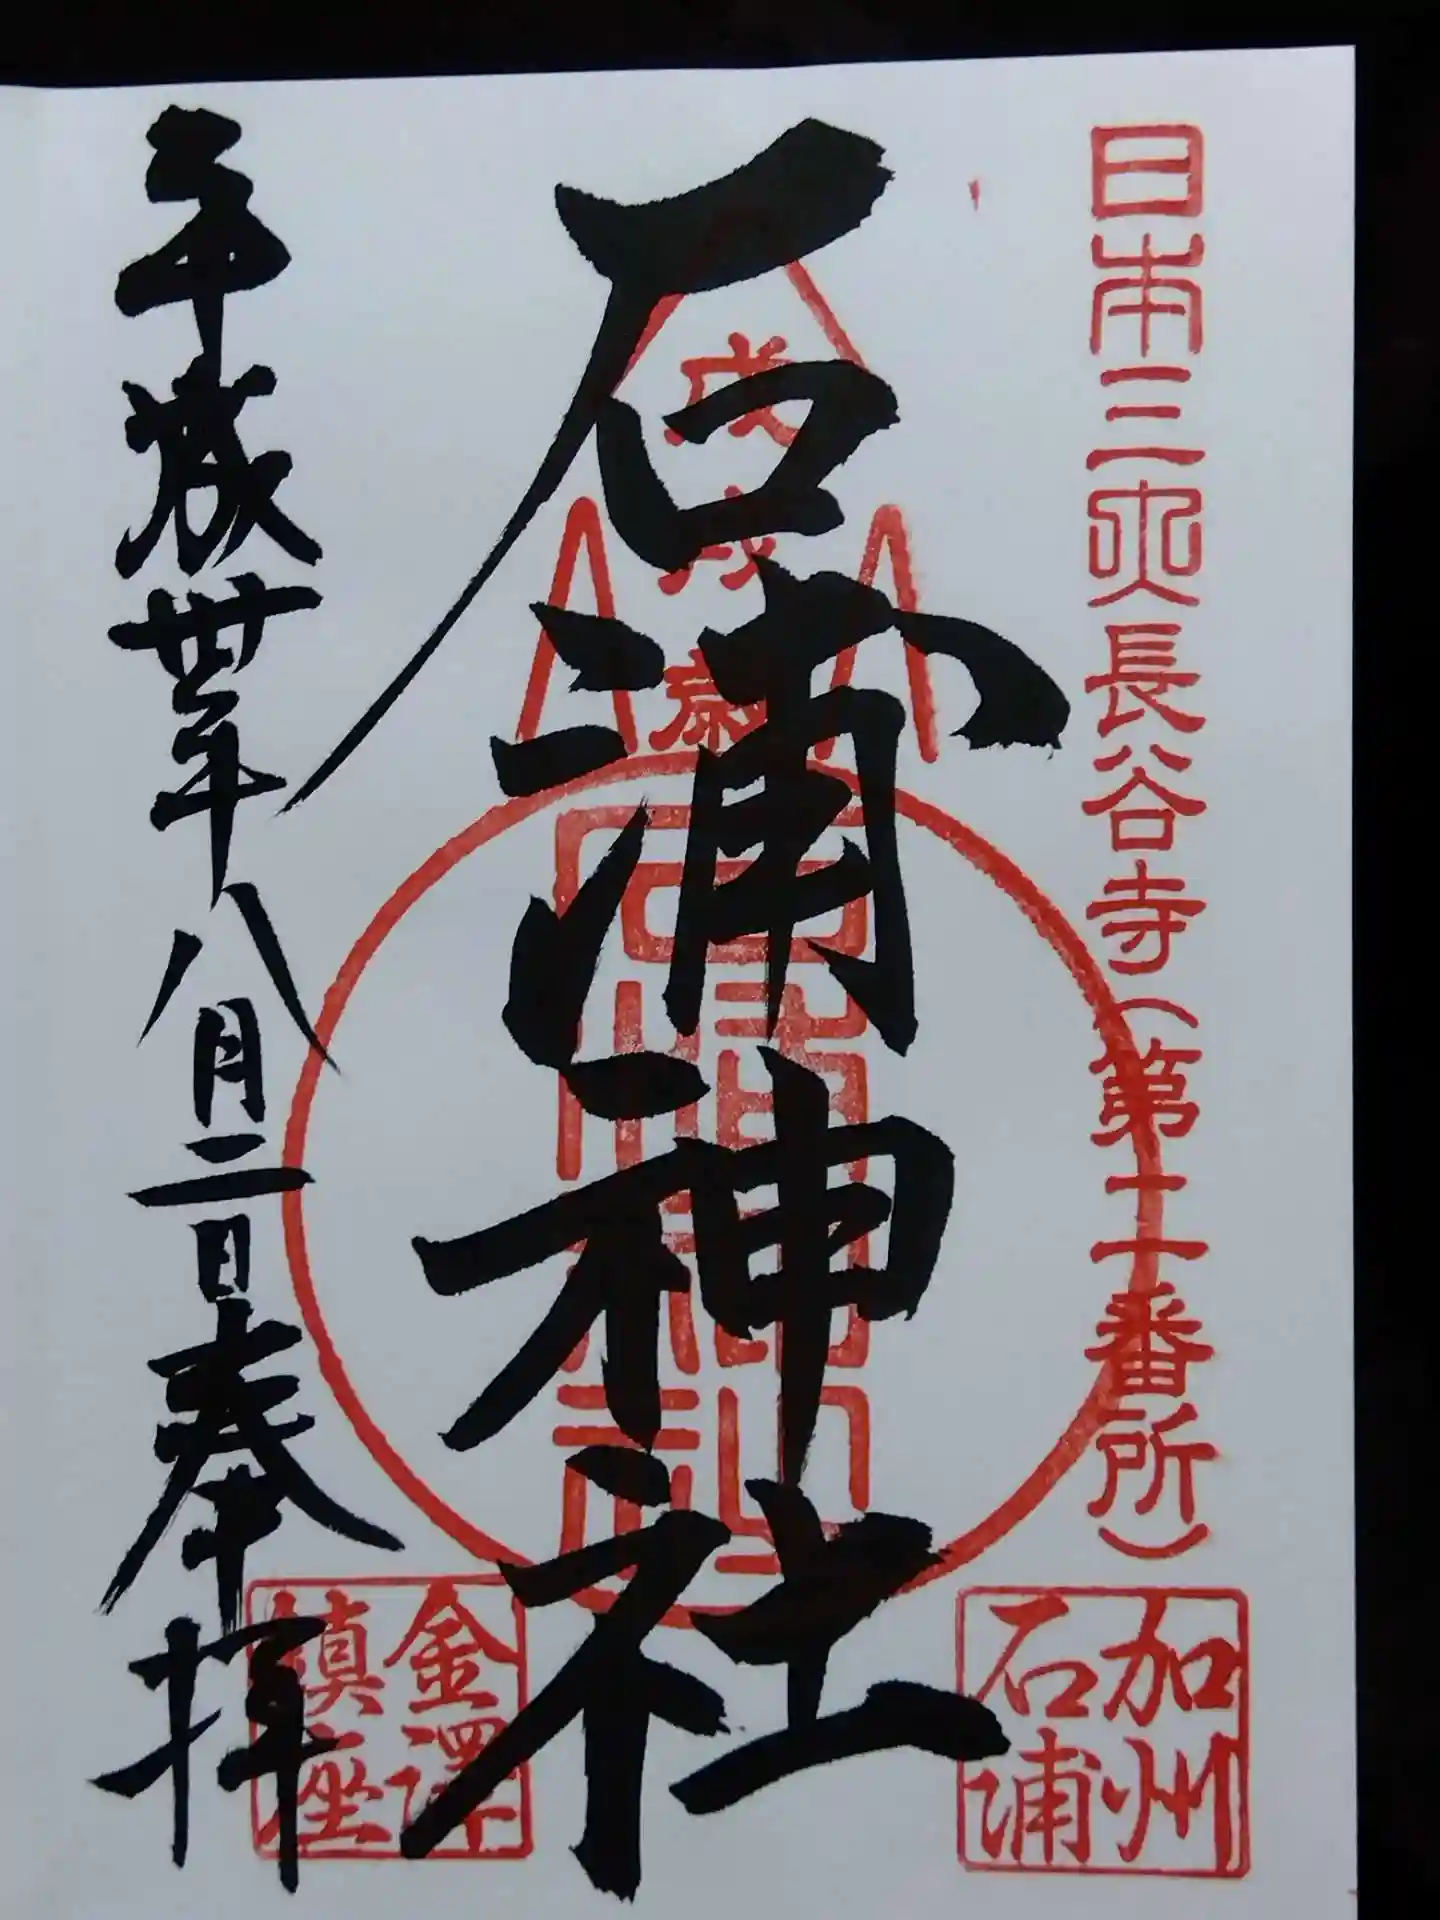 日本三大長谷寺(第二十番所)
加州
石浦
戊戌歳
石浦神社
石浦神社
金澤
鎮座
平成丗年八月二日奉拝